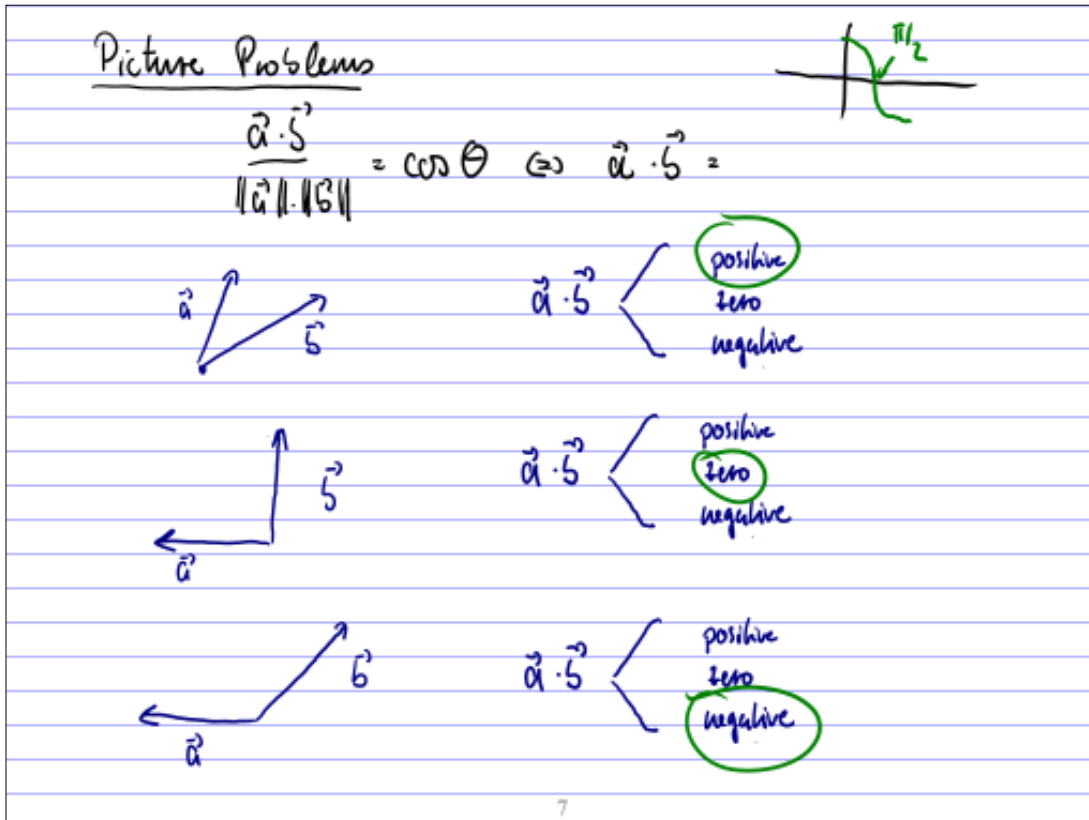 Picture Problems
π/2
a⃗ · b⃗ / ||a⃗|| · ||b⃗|| = cos θ ⇔ a⃗ · b⃗ =
a⃗
b⃗
a⃗ · b⃗
positive
zero
negative
b⃗
a⃗
a⃗ · b⃗
positive
zero
negative
b⃗
a⃗
a⃗ · b⃗
positive
zero
negative
7